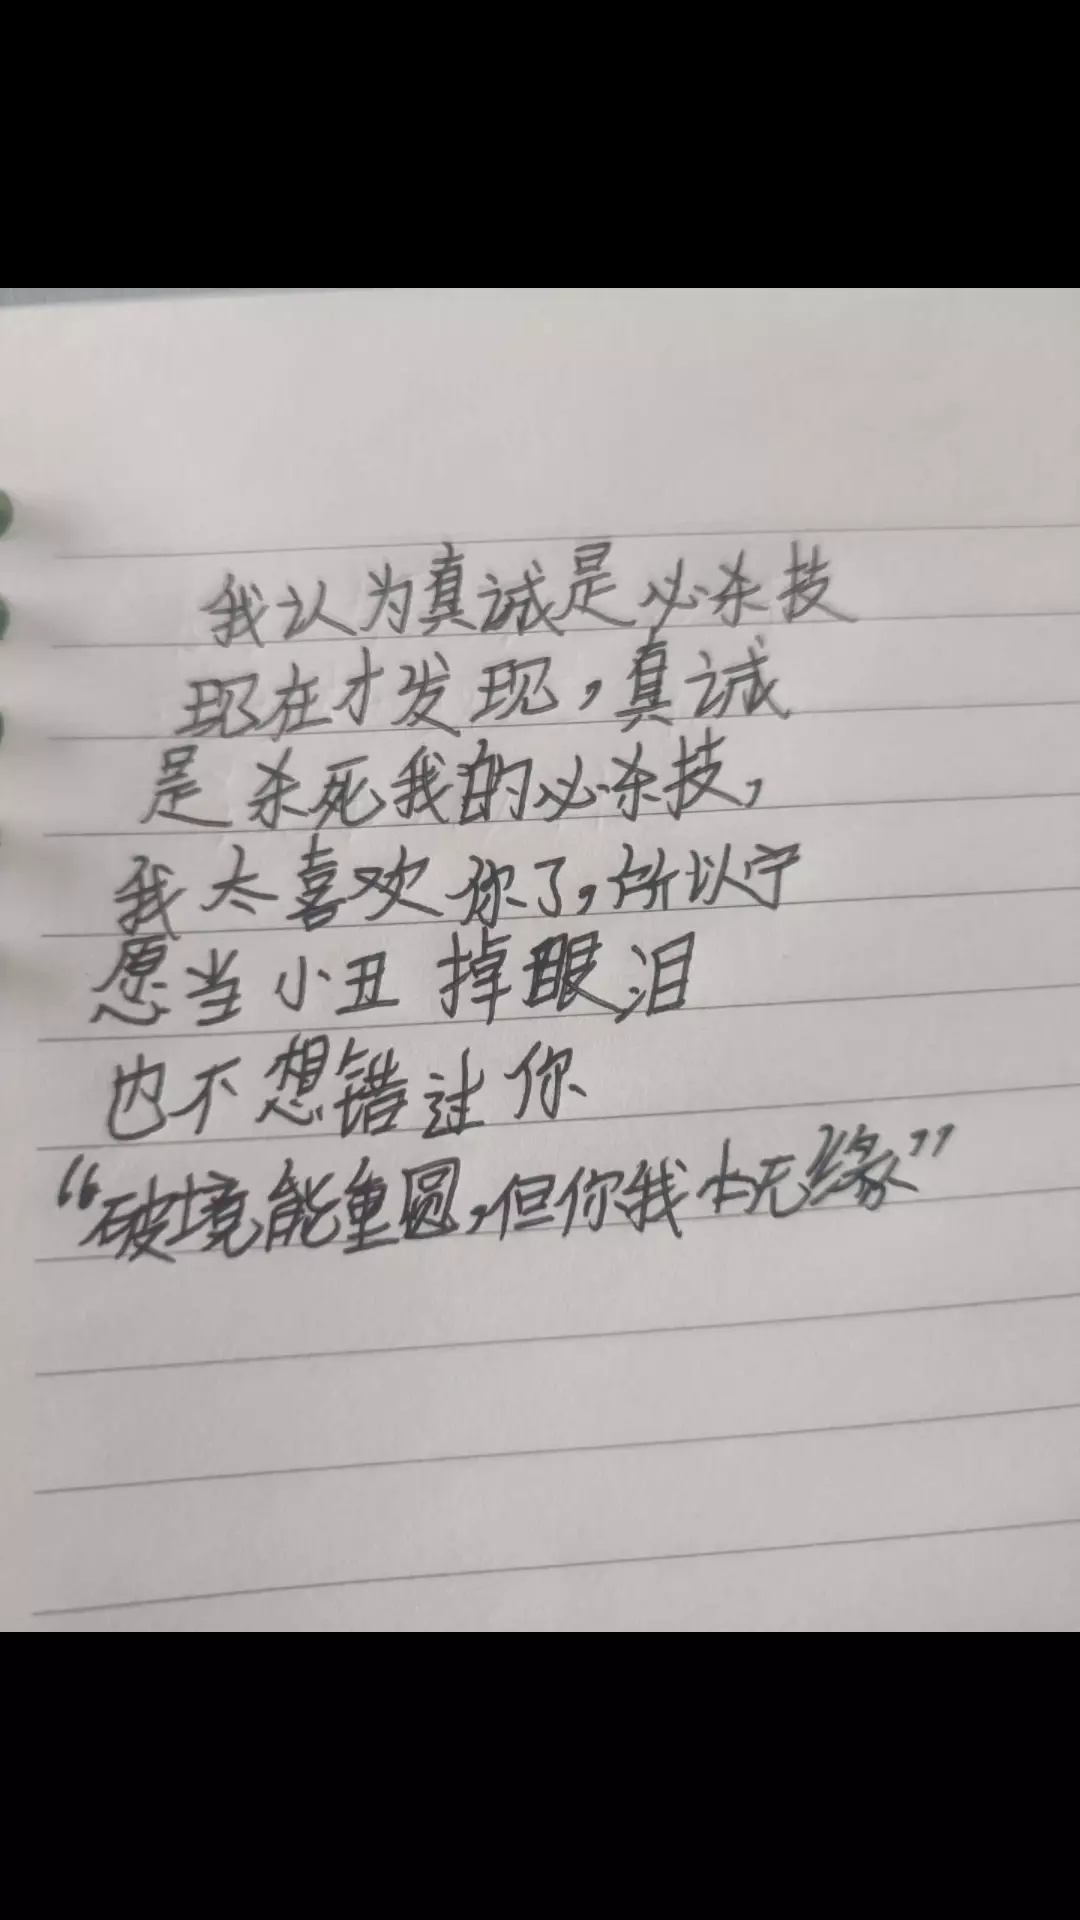 我认为真诚是必杀技
现在才发现，真诚
是杀死我的必杀技，
我太喜欢你了，所以宁
愿当小丑掉眼泪
也不想错过你
“破境能重圆，但你我无缘”